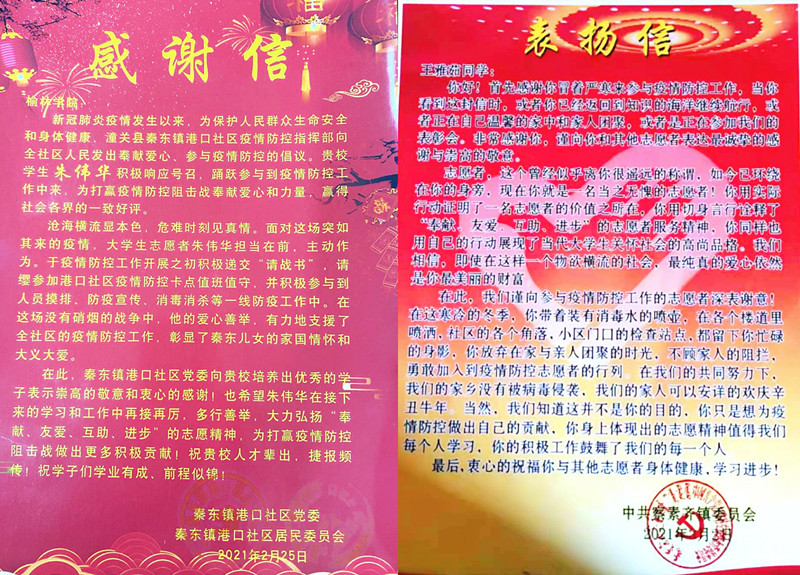 感谢信
榆林学院：
新冠肺炎疫情发生以来，为保护人民群众生命安全
和身体健康，潼关县秦东镇港口社区疫情防控指挥部向
全社区人民发出奉献爱心、参与疫情防控的倡议。贵校
学生朱伟华积极响应号召，踊跃参与到疫情防控工
作中来，为打赢疫情防控阻击战奉献爱心和力量，赢得
社会各界的一致好评。
沧海横流显本色，危难时刻见真情。面对这场突如
其来的疫情，大学生志愿者朱伟华担当在前，主动作
为。于疫情防控工作开展之初积极递交“请战书”，请
缨参加港口社区疫情防控卡点值班值守，并积极参与到
人员摸排、防疫宣传、消毒消杀等一线防疫工作中。在
这场没有硝烟的战争中，他的爱心善举，有力地支援了
全社区的疫情防控工作，彰显了秦东儿女的家国情怀和
大义大爱。
在此，秦东镇港口社区党委向贵校培养出优秀的学
子表示崇高的敬意和衷心的感谢！也希望朱伟华在接下
来的学习和工作中再接再厉，多行善举，大力弘扬“奉
献、友爱、互助、进步”的志愿精神，为打赢疫情防控
阻击战做出更多积极贡献！祝贵校人才辈出，捷报频
传！祝学子们学业有成、前程似锦！
秦东镇港口社区党委
秦东镇港口社区居民委员会
2021年2月25日
表扬信
王雅茹同学：
你好！首先感谢你冒着严寒来参与疫情防控工作，当你
看到这封信时，或者你已经返回到知识的海洋继续航行，或
者正在自己温馨的家中和家人团聚，或者是正在参加我们的
表彰会。非常感谢你，谨向你和其他志愿者表达最诚挚的感
谢与崇高的敬意。
志愿者，这个曾经似乎离你很遥远的称谓，如今已环绕
在你的身旁，现在你就是一名当之无愧的志愿者！你用实际
行动证明了一名志愿者的价值之所在，你用切身言行诠释了
“奉献、友爱、互助、进步”的志愿者服务精神，你同样也
用自己的行动展现了当代大学生关怀社会的高尚品格。我们
相信，即使在这样一个物欲横流的社会，最纯真的爱心依然
是你最美丽的财富
在此，我们谨向参与疫情防控工作的志愿者深表谢意！
在这寒冷的冬季，你带着装有消毒水的喷壶，在各个楼道里
喷洒，社区的各个角落，小区门口的检查站点，都留下你忙碌
的身影，你放弃在家与亲人团聚的时光，不顾家人的阻拦，
勇敢加入到疫情防控志愿者的行列。在我们的共同努力下，
我们的家乡没有被病毒侵袭，我们的家人可以安详的欢庆辛
丑牛年。当然，我们知道这并不是你的目的，你只是想为疫
情防控做出自己的贡献，你身上体现出的志愿精神值得我们
每个人学习，你的积极工作鼓舞了我们的每一个人。
最后，衷心的祝福你与其他志愿者身体健康，学习进步！
中共察素齐镇委员会
2021年2月2日